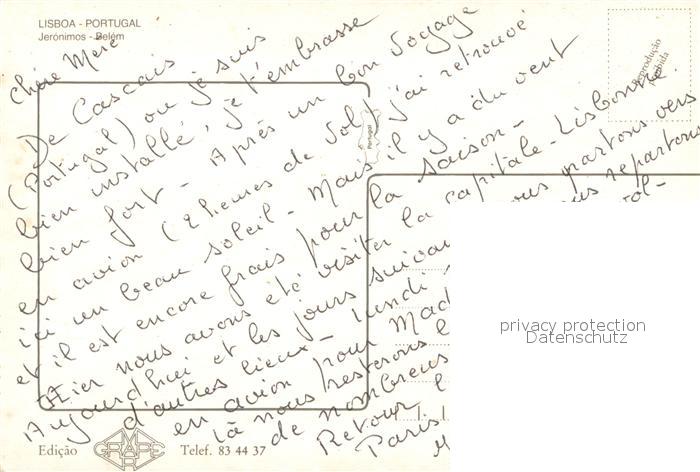 LISBOA - PORTUGAL
Jerónimos - Belém
Reprodução
proibida
Portugal
Chère Mère
De Cascais
(Portugal) ou je suis
bien installé, je t'embrasse
bien fort - Après un bon voyage
en avion (2 heures de vol) j'ai retrouvé
ici un beau soleil - Mais il y a du vent
et il est encore frais pour la saison -
Hier nous avons été visiter la capitale - Lisbonne.
Aujourd'hui et les jours suivan ous partons vers
d'autres lieux - lundi us repartons
en avion pour Mad ol-
là nous resterons
de nombreus
Retour
Paris
privacy protection
Datenschutz
Edição GRAPE Telef. 83 44 37